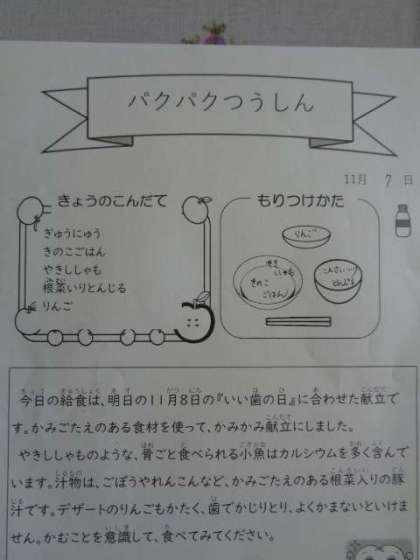 パクパクつうしん
11月 7 日
きょうのこんだて
ぎゅうにゅう
きのこごはん
やきししゃも
根菜いりとんじる
りんご
もりつけかた
りんご
やき
ししゃも
きのこ
ごはん
こんさいいり
とんじる
今日の給食は、明日の11月8日の『いい歯の日』に合わせた献立で
す。かみごたえのある食材を使って、かみかみ献立にしました。
やきししゃものような、骨ごと食べられる小魚はカルシウムを多く含んで
います。汁物は、ごぼうやれんこんなど、かみごたえのある根菜入りの豚
汁です。デザートのりんごもかたく、歯でかじりとり、よくかまないといけま
せん。かむことを意識して、食べてみてください。